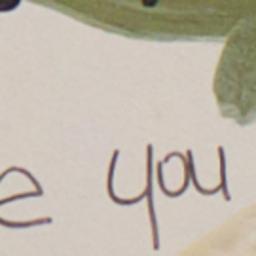 e you